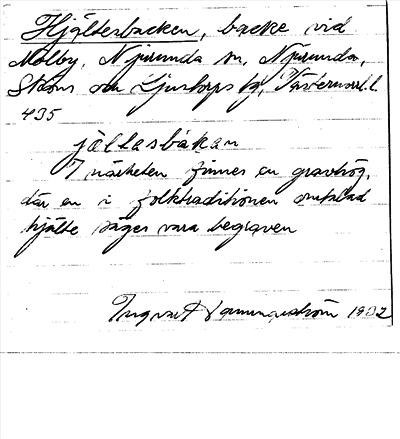 Hjälterbacken, backe vid
Målby, Njurunda sn, Njurunda,
Sköns och Ljustorps tg, Västernorrl. l.
435
jältasbákan
I närheten finnes en gravhög,
där en i folktraditionen omtalad
hjälte säges vara begraven
Ingvart 1932